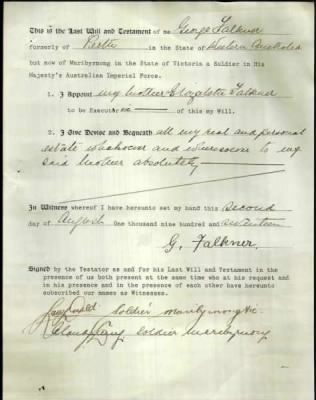 This is the Last Will and Testament of me George Falkner
formerly of Perth in the State of Western Australia
but now of Maribyrnong in the State of Victoria a Soldier in His
Majesty's Australian Imperial Force.
1. I Appoint my mother Elizabeth Falkner
to be Execut of this my Will.
2. I Give Devise and Bequeath all my real and personal
estate whatsoever and wheresoever to my
said mother absolutely
In Witness whereof I have hereunto set my hand this second
day of August One thousand nine hundred and seventeen
G. Falkner.
Signed by the Testator as and for his Last Will and Testament in the
presence of us both present at the same time who at his request and
in his presence and in the presence of each other have hereunto
subscribed our names as Witnesses.
Soldier Maribyrnong Vic.
Soldier Maribyrnong